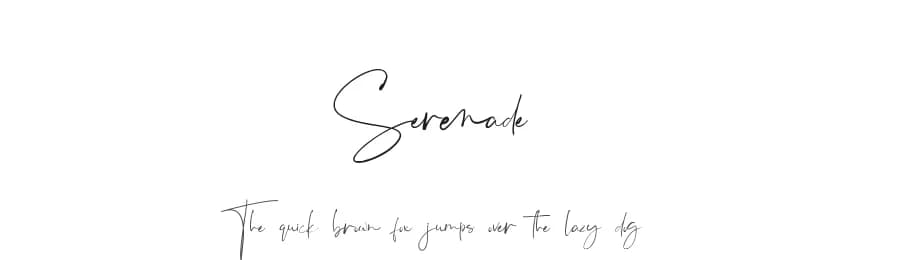 Serenade
The quick brown fox jumps over the lazy dog